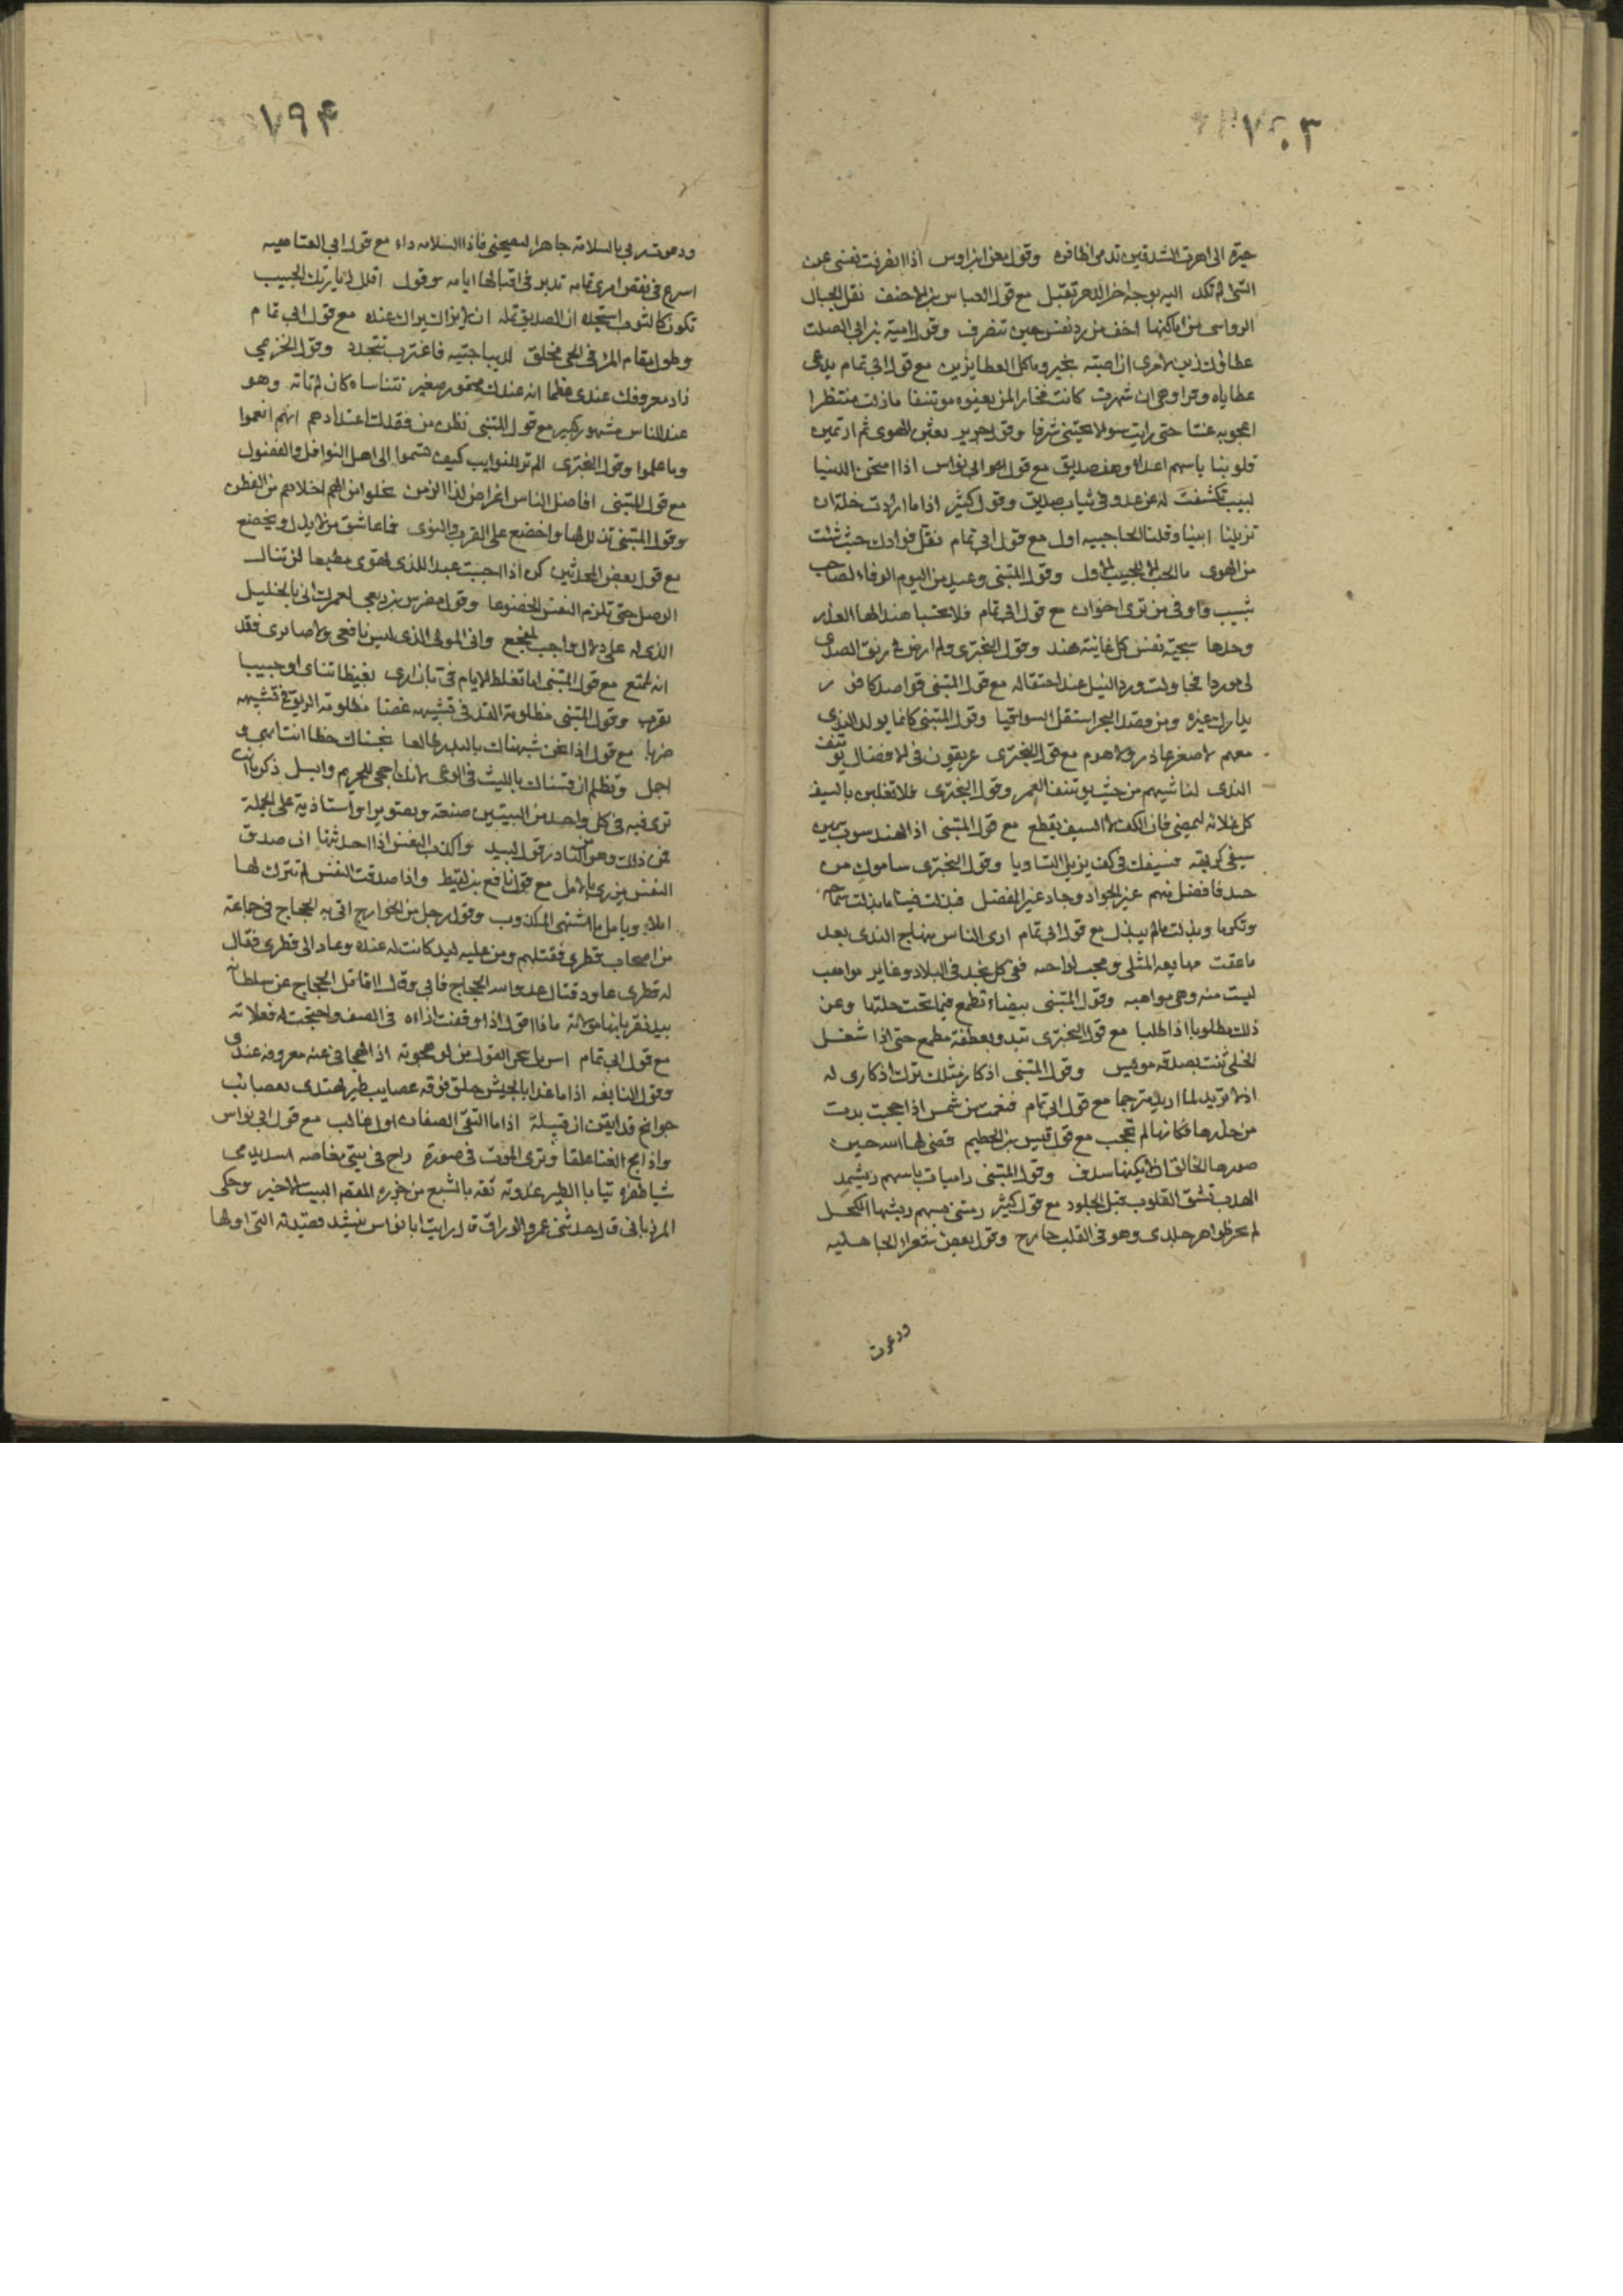 ٢٠٣
حيزه الى اهرت الشدقين تدمى اظافره وقول معن ابن اوس اذا انصرفت نفسى عن
الشئ لم تكد اليه بوجه اخر الدهر تقبل مع قول العباس بن الاحنف نقل الجبال
الرواسى من اماكنها اخف من رد نفس حين تنصرف وقول امية بن ابى الصلت
عطاؤك زين لامرى ان اصبته بخير وما كل العطا يزين مع قول ابى تمام يدعى
عطاياه وفرا وهى ان شهرت كانت فخارا لمن يعفوه موتنفا ما زلت منتظرا
اعجوبه عننا حتى رايت سوالا يجتنى شرفا وقول جرير بعثن الهوى ثم ارتمين
قلوبنا باسهم اعداء وهن صديق مع قول ابى نواس اذا امتحن الدنيا
لبيب تكشفت له عن عدو فى ثياب صديق وقول كثير اذا ما ارادت خلة ان
تزيلنا ابينا وقلنا الحاجبيه اول مع قول ابى تمام نقل فوادك حيث شئت
من الهوى ما الحب الا للحبيب الاول وقول المتنبى وعند من اليوم الوفاء لصاحب
شبيب واوفى من ترى اخوان مع قول ابى تمام فلا تحسبا هندا لها الغدر
وحدها سجية نفس كل غانية هند وقول البحترى ولم ارض فى رنق الصدى
لى موردا فحاولت ورد النيل عند احتفاله مع قول المتنبى قواصد كافور
بدارك غيره ومن قصد البحر استقل السواقيا وقول المتنبى كانما يولد الندى
معهم لا صغر عاذر ولا هرم مع قول البحترى عريقون فى الافضال يوتنف
الندى لناشيهم من حيث يوتنف العمر وقول البحترى فلا تغلبن بالسيف
كل غلائه ليمضى فان الكف لا السيف يقطع مع قول المتنبى اذا الهند سوت بين
سيفى كريهه فسيفك فى كف يزيل التساويا وقول البحترى ساموك من
حسد فافضل منهم غير الجواد وجاد غير المفضل فبذلت فينا ما بذلت سماحه
وتكرما وبذلت ما لم يبذل مع قول ابى تمام ارى الناس منهاج الندى بعد
ما عفت مهايعه المثلى ومحت لواحبه ففى كل نجد فى البلاد وغاير مواهب
ليست منه وهى مواهبه وقول المتنبى بيضاء تطمع فيما تحت حلتها وعز
ذلك مطلوبا اذا طلبا مع قول البحترى تبدو بعطفة مطمع حتى اذا شغل
الخلى ثنت بصدفه مويس وقول المتنبى اذكار مثلك ترك اذكارى له
اذ لا تريد لما اريد مترجما مع قول ابى تمام فنعمت من شمس اذا حجبت بدت
من خدرها فكانها لم تحجب مع قول قيس بن الخطيم قضى لها الله حين
صورها الخالق ان لا يكنها سدف وقول المتنبى راميات باسهم ريشها
الهدب تشق القلوب قبل الجلود مع قول كثير رمتنى بسهم ريشها الكحل
لم يحز ظواهر جلدى وهو فى القلب جارح وقول بعض شعراء الجاهليه
ودعوت
١٩۴
ودعوت ربى بالسلامة جاهدا ليصحنى فاذا السلامه داء مع قول ابى العتاهيه
اسرع فى نقص امرى تمامه تدبر فى اقبالها ايامه وقول اقلل زيارتك الحبيب
تكون كالثوب استجده ان الصديق يمله ان لا يزال يراك عنده مع قول ابى تمام
وطول مقام المرء فى الحى مخلق لديباجتيه فاغترب تتجدد وقول الخزيمى
زاد معروفك عندى عظما انه عندك محقور صغير تتناساه كان لم تاته وهو
عند الناس مشهور كبير مع قول المتنبى تظن من فقدك اعتدادهم انهم انعموا
وما علموا وقول البحترى الم تر للنوايب كيف تسموا الى اهل النوافل والفضول
مع قول المتنبى افاضل الناس اغراض لذا الزمن يخلوا من الهم اخلاهم من الفطن
وقول المتنبى تذلل لها واخضع على القرب والنوى فما عاشق من لا يذل ويخضع
مع قول بعض المحدثين كن اذا احببت عبدا للذى تهوى مطيعا لن تنال
الوصل حتى تلزم النفس الخضوعا وقول مضرس بن ربعى لعمرك انى بالخليل
الذى له على دلال واجب لمفجع وانى المولى الذى ليس نافعى ولا ضايرى فقد
انه لممتع مع قول المتنبى اما تغلط الايام فى بان ارى بغيضا تناى او حبيبا
تقرب وقول المتنبى مظلومة القد فى تشبيهه غصنا مظلومة الريق فى تشبيهه
ضربا مع قول اذا نحن شبهناك بالبدر طالعا بخسناك حظا انت ابهى و
اجمل ونظلم ان قسناك بالليث فى الوغى لانك احمى للحريم وابسل ذكر ما انت
ترى فيه فى كل واحد من البيتين صنعة وتصويرا واستاذية على الجملة
فمن ذلك وهو من النادر قول لبيد واكذب النفس اذا حدثتها ان صدق
النفس يزرى بالامل مع قول نافع بن لقيط واذا صدقت النفس لم تترك لها
املا ويامل ما اشتهى المكذوب وقول رجل من الخوارج اتى به الحجاج فى جماعة
من اصحاب قطرى فقتلهم ومن عليه ليد كانت له عنده وعاد الى قطرى فقال
له قطرى عاود قتال عدو الله الحجاج فابى وقال ااقاتل الحجاج عن سلطانه
بيد تقر بانها مولاته ماذا اقول اذا وقفت ازاءه فى الصف واحتجت له فعلاته
مع قول ابى تمام اسربل هجر القول من لو هجوته اذا لهجانى عنه معروفه عندى
وقول النابغه اذا ما غدا بالجيش حلق فوقه عصايب طير تهتدى بعصائب
جوانح قد ايقن ان قبيله اذا ما التقى الصفان اول غالب مع قول ابى نواس
واذا مج القنا علقا وترى الموت فى صورة راح فى ثنيى مفاضه اسد يدمى
شبا ظفره تتايا الطير غدوته ثقه بالشبع من جزره المقصد البيت الاخير وحكى
المرزبانى قال حدثنى عمرو الوراق قال رايت ابا نواس ينشد قصيدته التى اولها